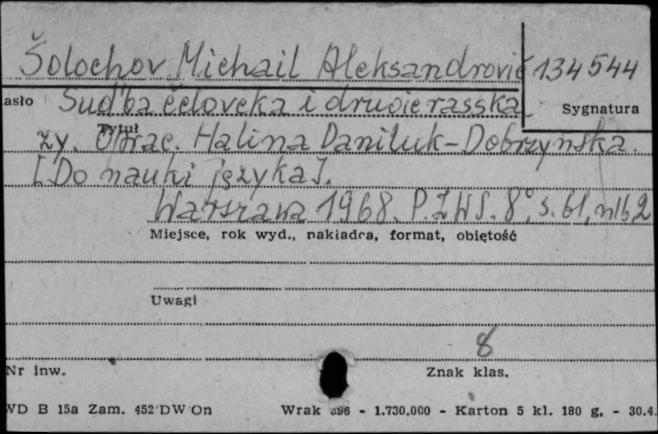 Šolochov Michail Aleksandrovič 134544
asło Sud'ba čeloveka i drugie rasska
Sygnatura
Tytuł
zy. Oprac. Halina Daniluk-Dobrzyńska.
[Do nauki języka].
Warszawa 1968. P.Z.W.S. 8°, s. 61, nlb 2
Miejsce, rok wyd., nakładca, format, objętość
Uwagi
8
Nr inw. Znak klas.
WD B 15a Zam. 452 DW On Wrak 396 - 1.730.000 - Karton 5 kl. 180 g. - 30.4.